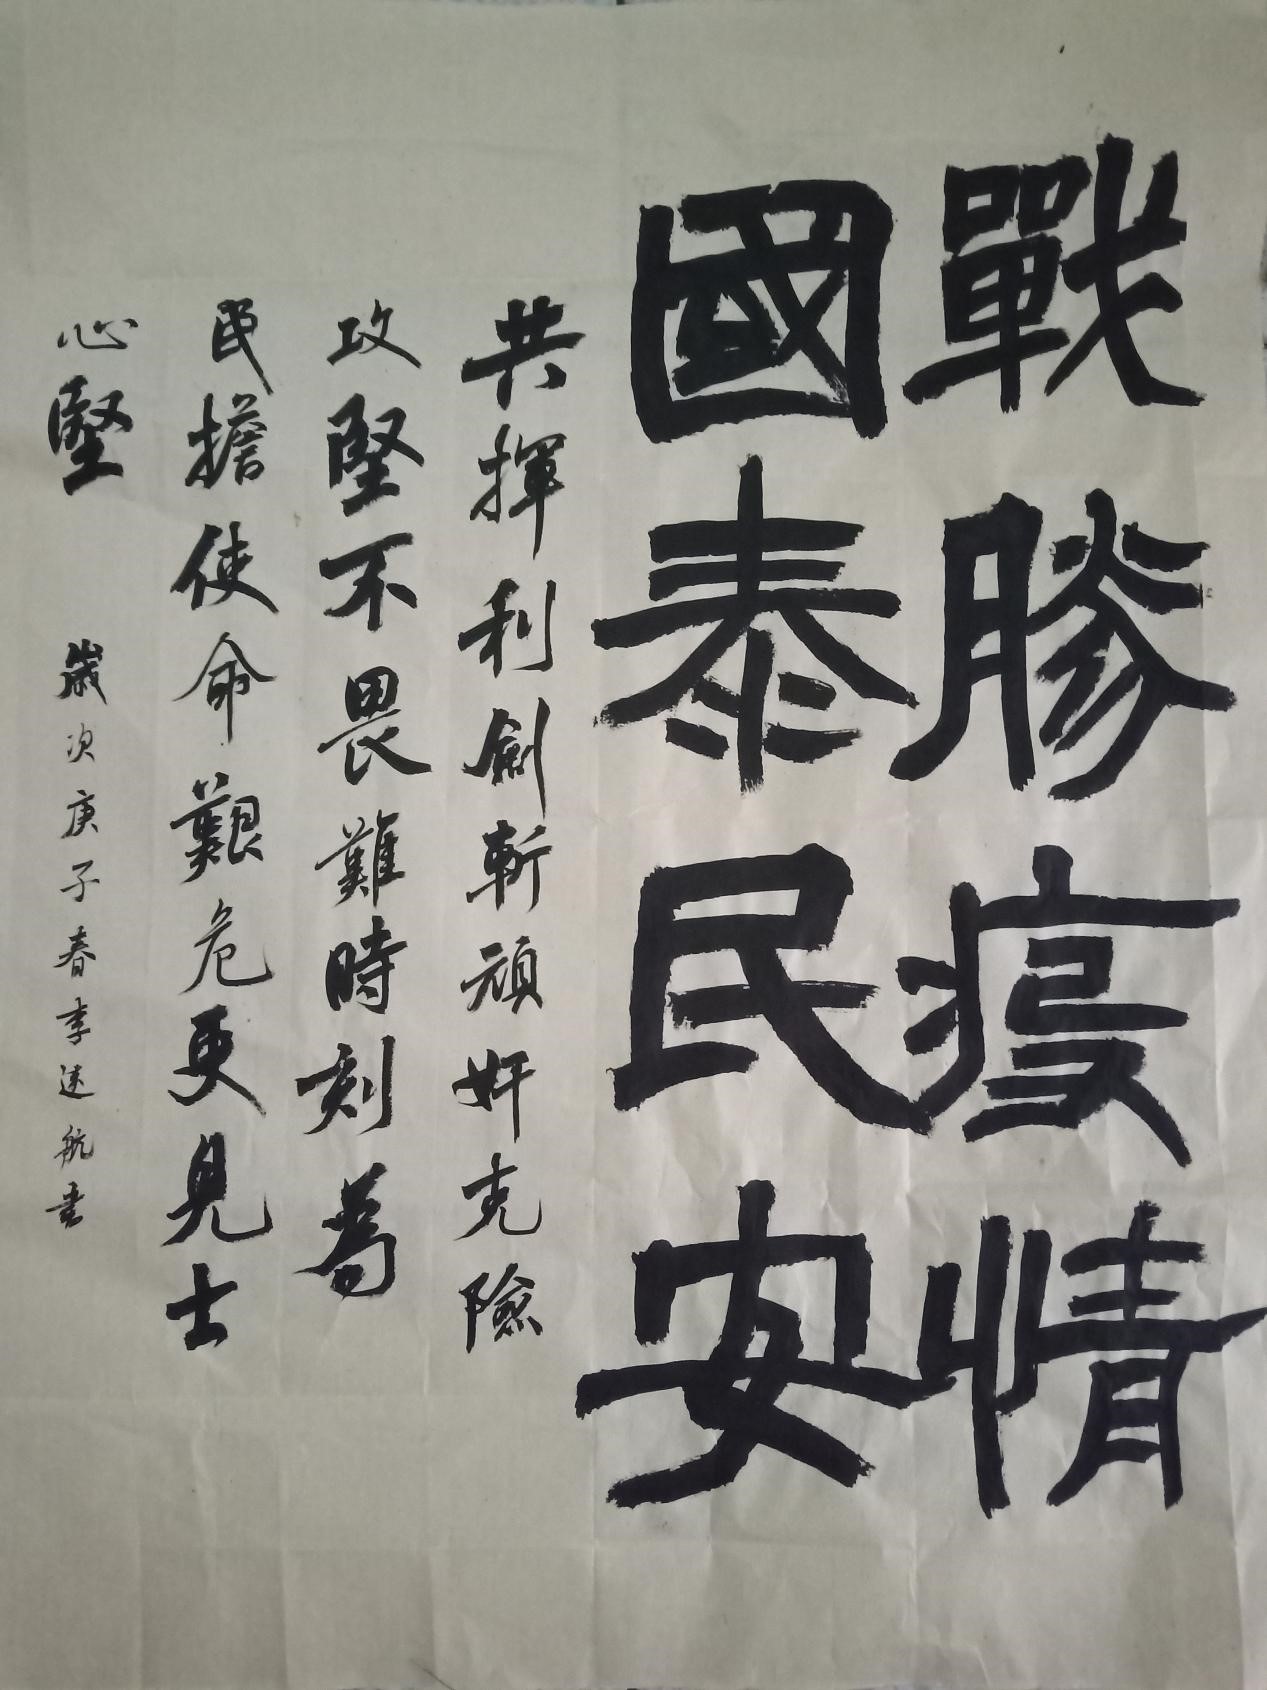 戰勝疫情
國泰民安
共揮利劍斬頑奸克險
攻堅不畏難時刻為
民擔使命艱危更見士
心堅
歲次庚子春李遠航書